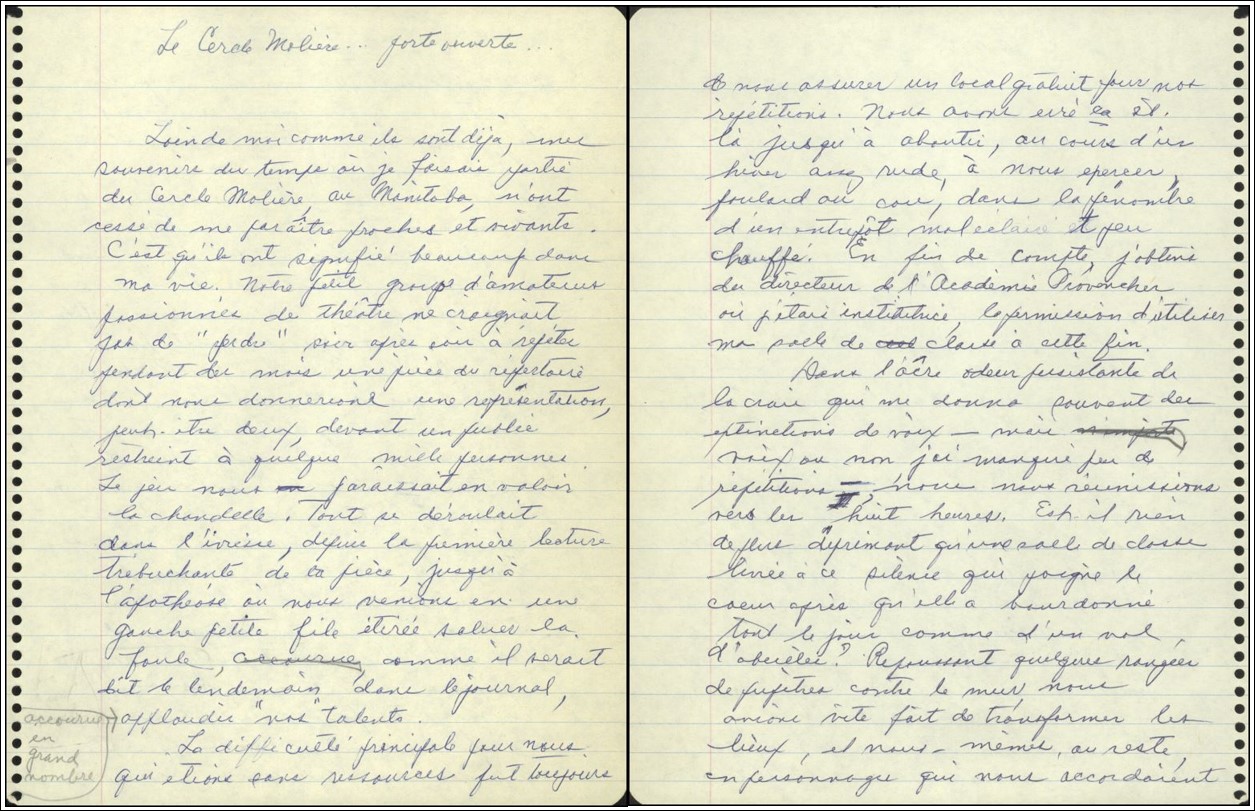 Le Cercle Molière... porte ouverte...
Loin de moi comme ils sont déjà, mes
souvenirs du temps où je faisais partie
du Cercle Molière, au Manitoba, n'ont
cessé de me paraître proches et vivants.
C'est qu'ils ont signifié beaucoup dans
ma vie. Notre petit groupe d'amateurs
passionnés de théâtre ne craignait
pas de "perdre" soir après soir à répéter
pendant des mois une pièce du répertoire
dont nous donnerions une représentation,
peut-être deux, devant un public
restreint à quelque mille personnes.
Le jeu nous paraissait en valoir
la chandelle. Tout se déroulait
dans l'ivresse, depuis la première lecture
trébuchante de la pièce, jusqu'à
l'apothéose où nous venions en une
gauche petite file étirée saluer la
foule, accourue, comme il serait
dit le lendemain dans le journal,
applaudir "nos" talents.
accourue
en
grand
nombre
La difficulté principale pour nous
qui étions sans ressources fut toujours
de nous assurer un local gratuit pour nos
répétitions. Nous avons erré ça et
là jusqu'à aboutir, au cours d'un
hiver assez rude, à nous exercer,
foulard au cou, dans la pénombre
d'un entrepôt mal éclairé et peu
chauffé. En fin de compte, j'obtins
du directeur de l'Académie Provencher
où j'étais institutrice, la permission d'utiliser
ma salle de classe à cette fin.
Dans l'âcre odeur persistante de
la craie qui me donna souvent des
extinctions de voix – mais
voix ou non j'ai manqué peu de
répétitions –, nous nous réunissions
vers les huit heures. Est-il rien
de plus déprimant qu'une salle de classe
livrée à ce silence qui poigne le
coeur après qu'elle a bourdonné
tout le jour comme d'un vol
d'abeilles? Repoussant quelques rangées
de pupitres contre le mur, nous
avions vite fait de transformer les
lieux, et nous-mêmes, au reste
en personnages qui nous accordaient